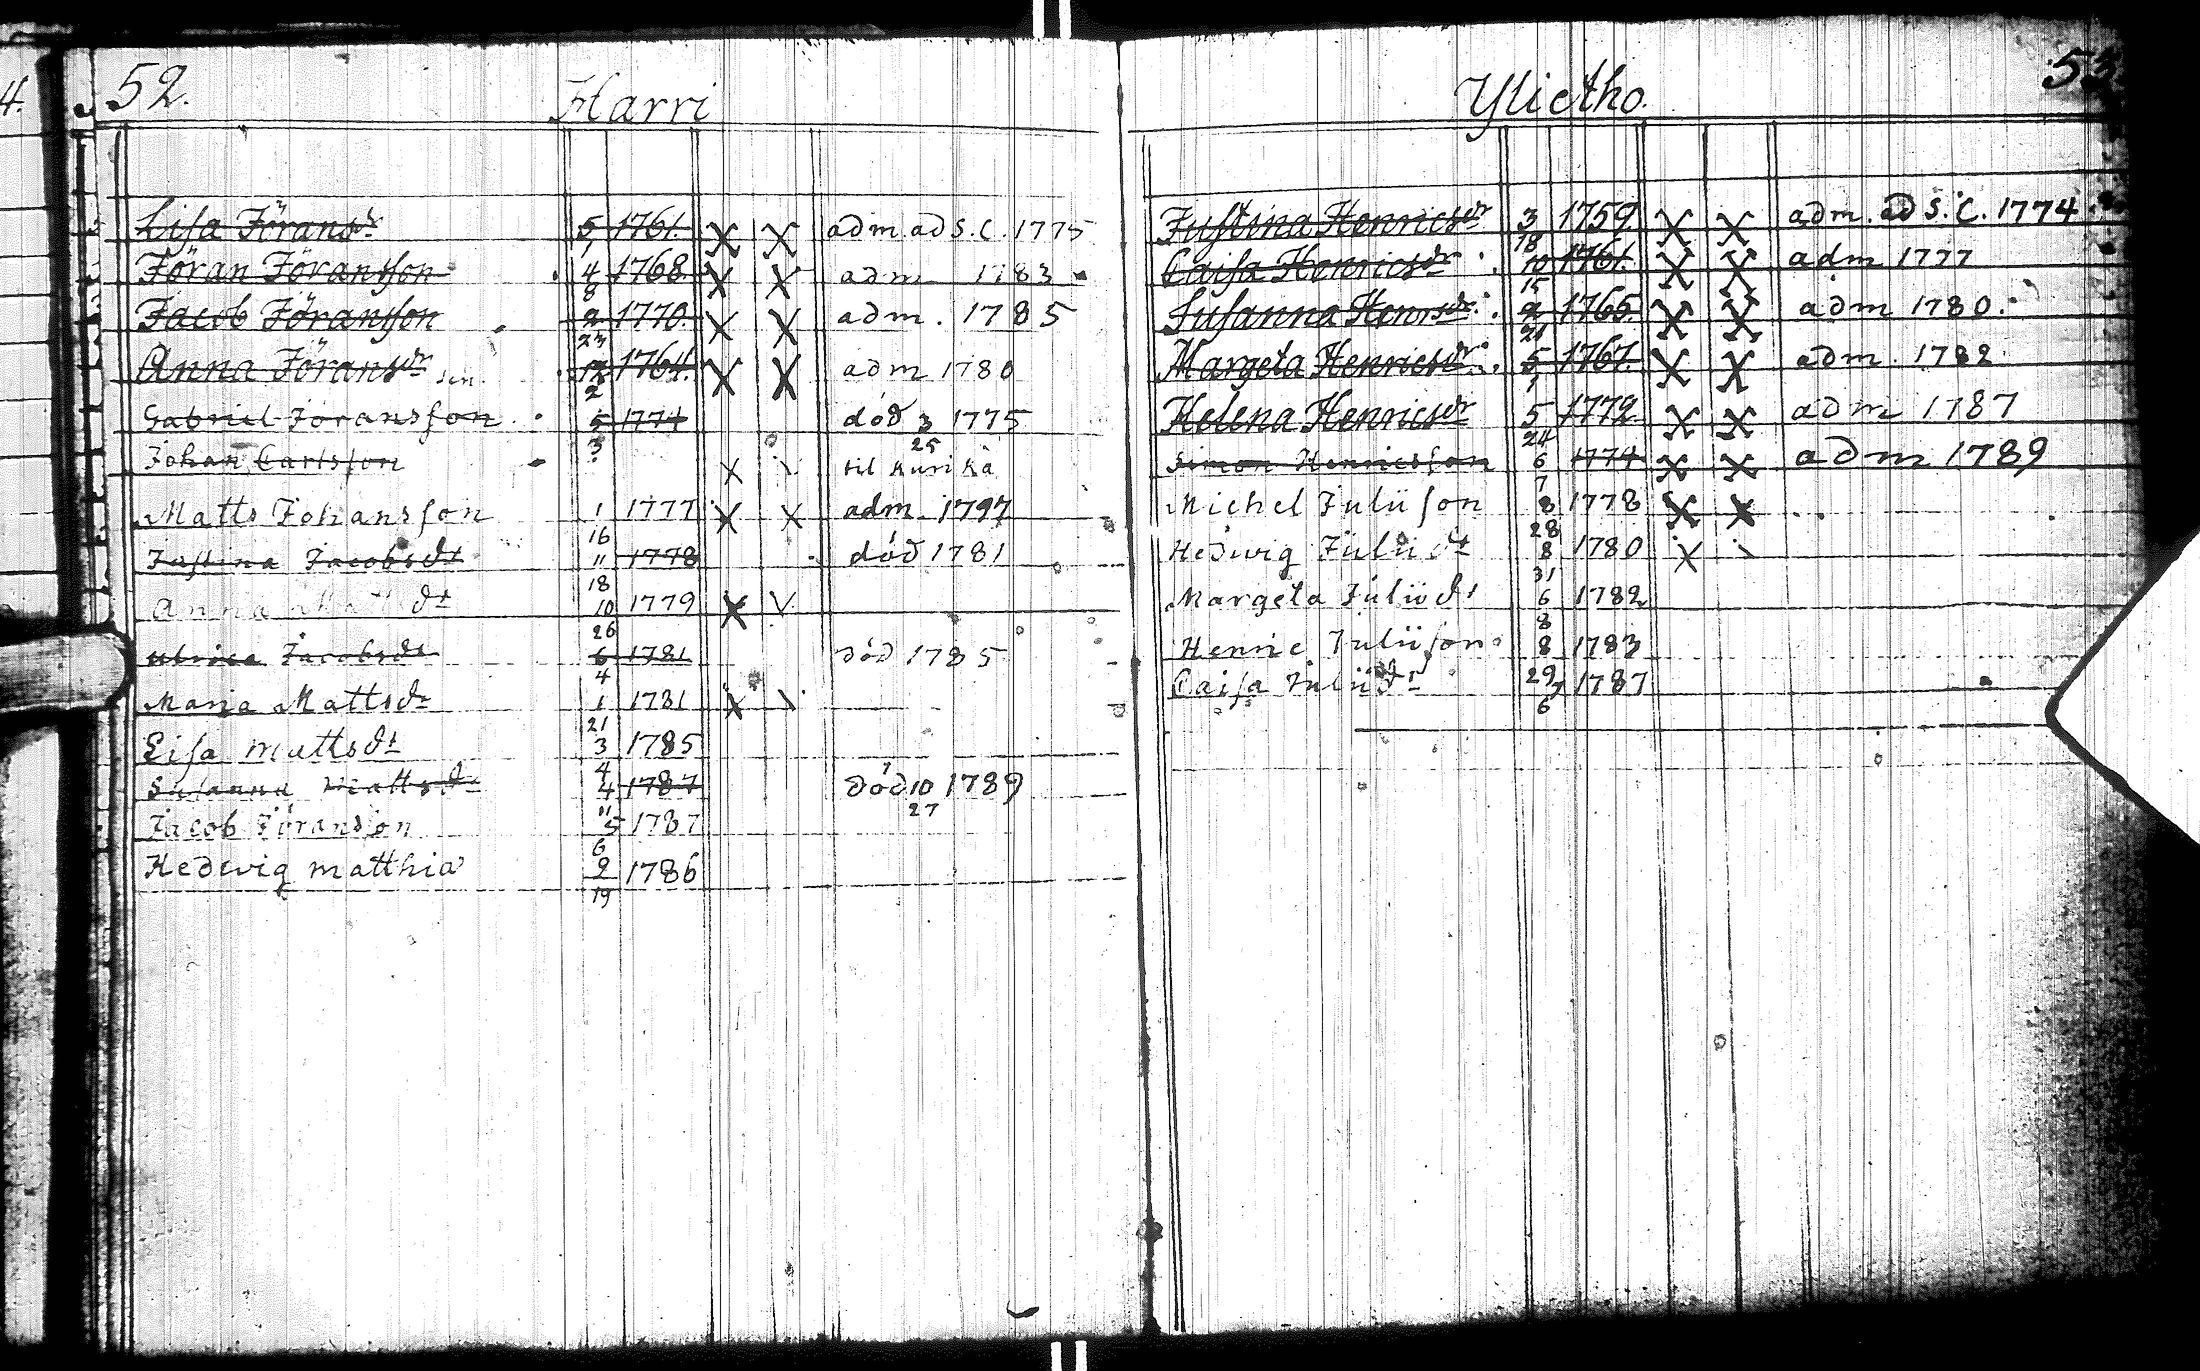 52.
Harri
Lisa Jörans dr 5/1 1761. X X adm. ad S. C. 1775
Jöran Jöransson 4/8 1768. X X adm 1783
Jacob Jöransson 2/23 1770. X X adm. 1785
Anna Jörans dr 2 1764. X X adm 1780
Gabriel Jöransson 5/3 1774 död 3/25 1775
Johan Carlsson X \ til Kurika
Matts Johansson 1/16 1777 X X adm. 1797
Justina Jacobs dr 11/18 1778 död 1781
Anna Matts dr 10/26 1779 X V
Ulrica Jacobs dr 6/4 1781 död 1785
Maria Matts dr 1/21 1781 X \
Lisa Matts dr 3/4 1785
Susanna Matts dr 4/11 1787 död 10/27 1789
Jacob Jöransson 5/6 1787
Hedwig Matthiæ 9/19 1786
53
Ylietho.
Justina Henrics dr 3/18 1759. X X adm. ad S. C. 1774
Caisa Henrics dr 10/15 1761. X X adm 1777
Susanna Henrs dr 2/21 1765. X X adm 1780.
Margeta Henrics dr 5/1 1767. X X adm. 1782
Helena Henrics dr 5/24 1772. X X adm 1787
Simon Henricsson 6/7 1774 X X adm 1789
Michel Juliison 8/28 1778 X X
Hedwig Julii dr 8/31 1780 X \
Margeta Julii dr 6/8 1782
Henric Juliison 8/29 1783
Caisa Julii dr 7/6 1787